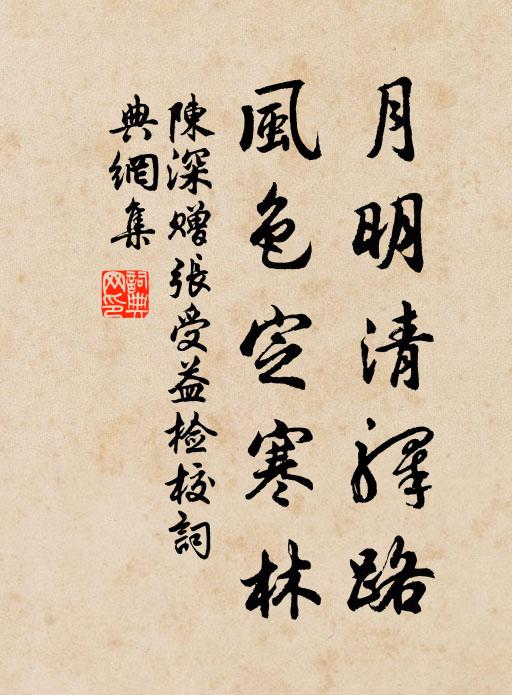 月明清驛路
風色定寒林
陳深贈張受益檢校詞
典網集
詞典
网印